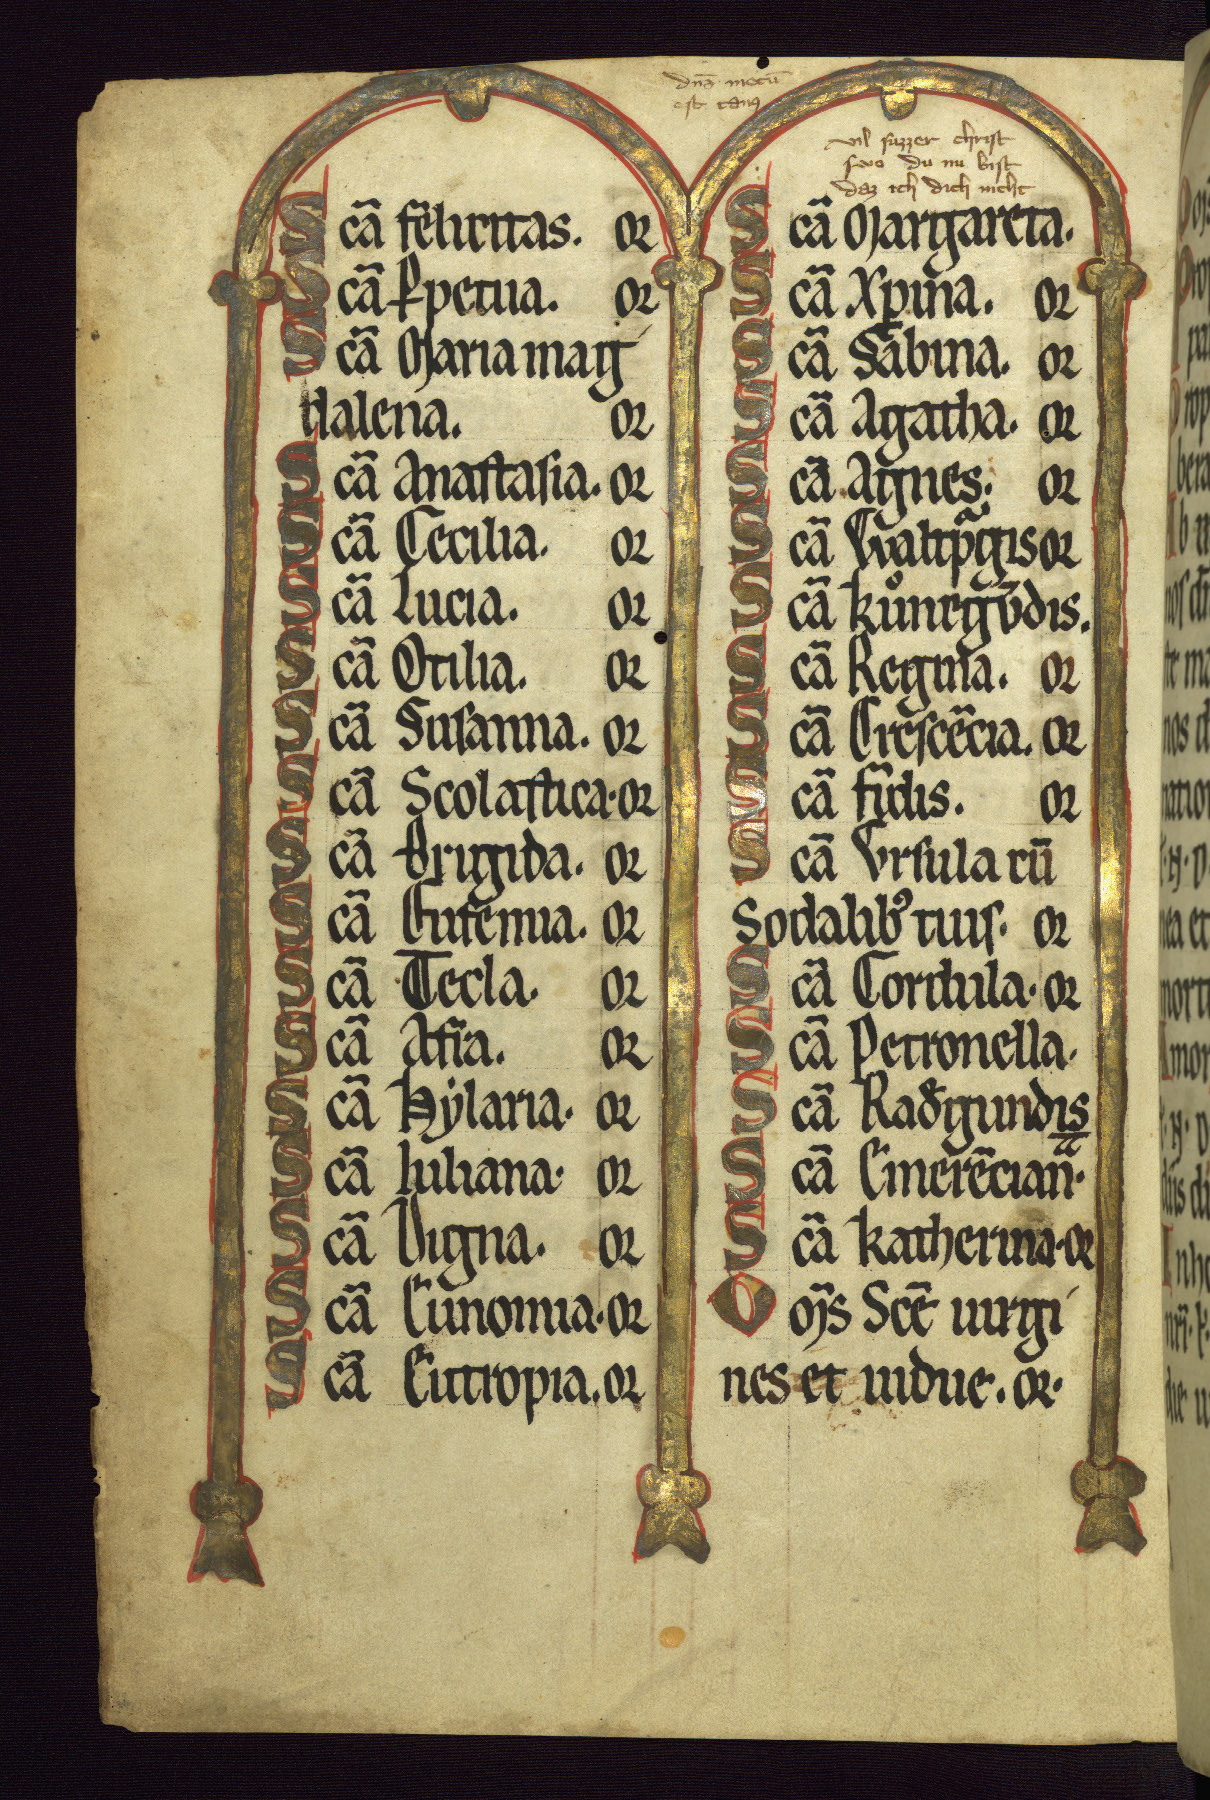 dn̄s mecū
est tanq̄
vil suzzer christ
swo du nu bist
daz ich dich nicht
Scā felicitas. or
Scā Ꝑpetua. or
Scā Maria mag
dalena. or
Scā Anastasia. or
Scā Cecilia. or
Scā Lucia. or
Scā Otilia. or
Scā Susanna. or
Scā Scolastica. or
Scā Brigida. or
Scā Eufemia. or
Scā Tecla. or
Scā Afra. or
Scā Hẏlaria. or
Scā Iuliana. or
Scā Digna. or
Scā Eunomia. or
Scā Eutropia. or
Scā Margareta.
Scā Xp̄ina. or
Scā Sabina. or
Scā Agatha. or
Scā Agnes. or
Scā Waltpᵃgis or
Scā Kůnegūdis.
Scā Regina. or
Scā Crescēcia. or
Scā fidis. or
Scā Vrsula cū
Sodalibꝰ tuis. or
Scā Cordula. or
Scā Petronella.
Scā Radgundis
Scā Emerēciañ.
Scā Katherina. or
Om̄s Scē uirgi
nes et uidue. or.